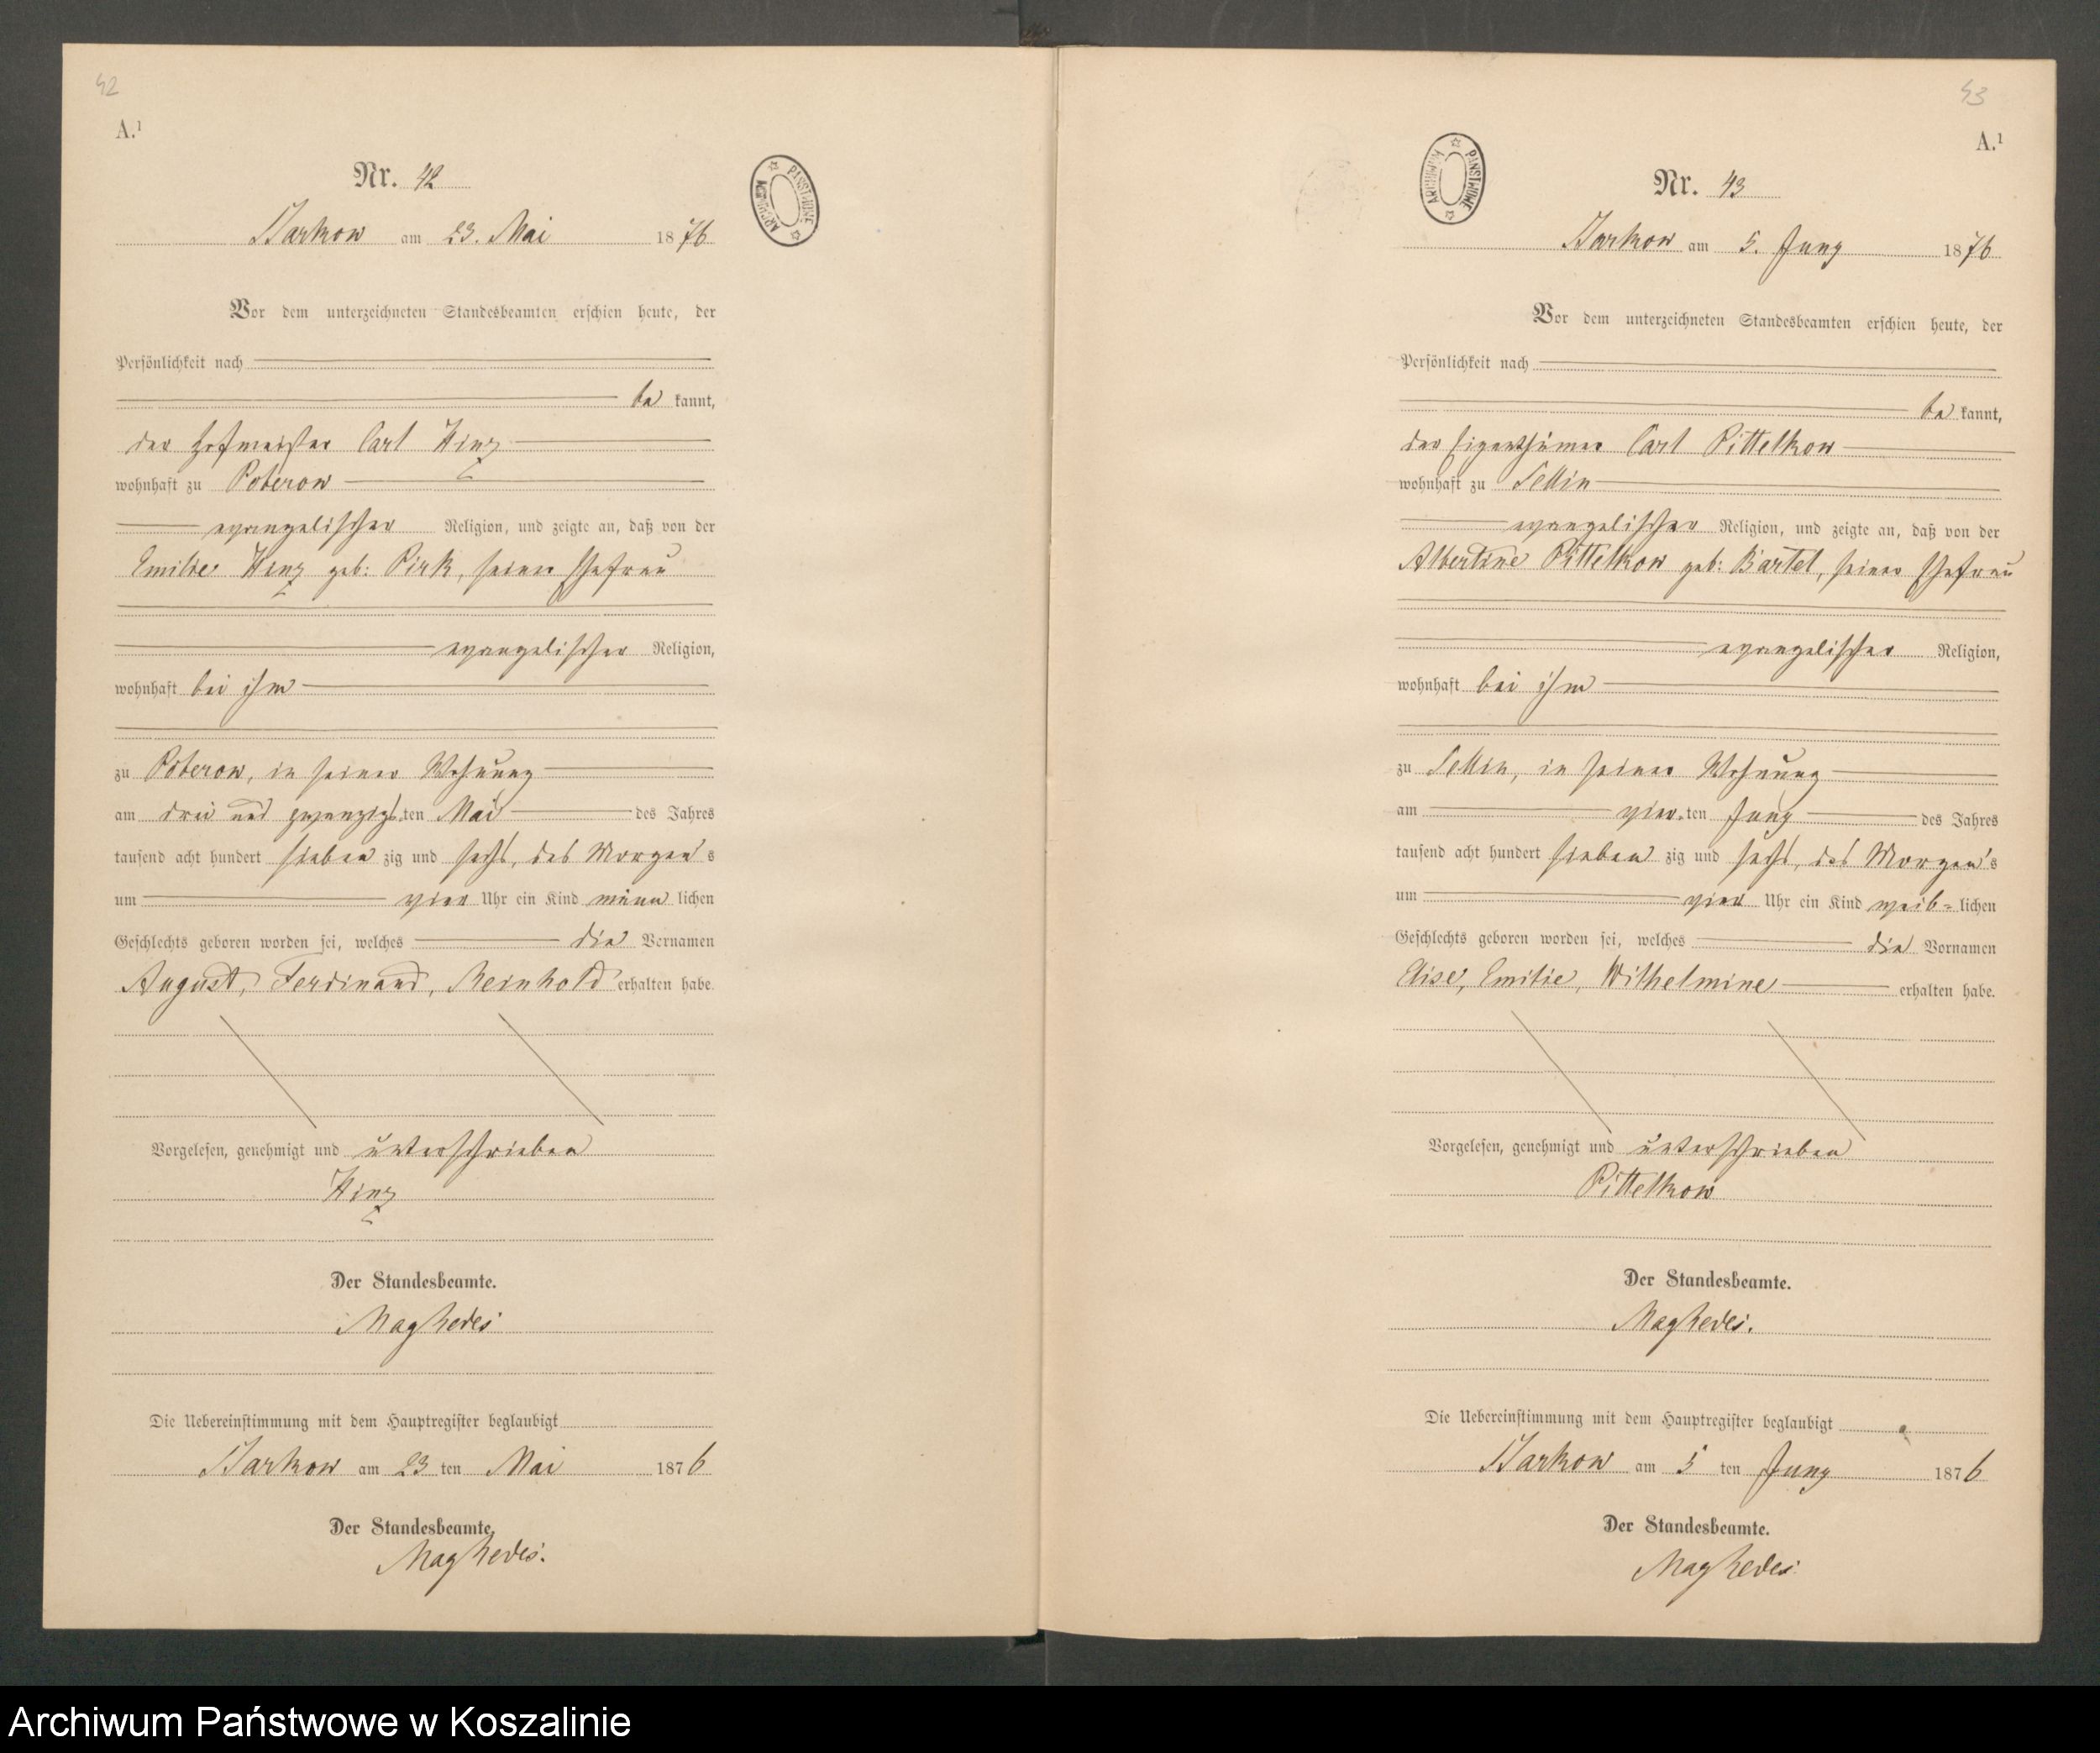 42
A.¹
Nr. 42
Karkow am 23. Mai 1876
Vor dem unterzeichneten Standesbeamten erschien heute, der
Persönlichkeit nach
be kannt,
der Hofmeister Carl Hinz
wohnhaft zu Poberow
evangelischer Religion, und zeigte an, daß von der
Emilie Hinz geb: Pirk, seiner Ehefrau
evangelischer Religion,
wohnhaft bei ihm
zu Poberow, in seiner Wohnung
am drei und zwanzigsten Mai des Jahres
tausend acht hundert sieben zig und sechs, des Morgen's
um vier Uhr ein Kind männ lichen
Geschlechts geboren worden sei, welches die Vornamen
August, Ferdinand, Reinhold erhalten habe.
Vorgelesen, genehmigt und unterschrieben
Hinz
Der Standesbeamte.
Die Uebereinstimmung mit dem Hauptregister beglaubigt
Karkow am 23 ten Mai 1876
Der Standesbeamte.
ARCHIWUM PAŃSTWOWE
43
A.¹
Nr. 43
Karkow am 5. Juny 1876
Vor dem unterzeichneten Standesbeamten erschien heute, der
Persönlichkeit nach
be kannt,
der Eigenthümer Carl Pittelkow
wohnhaft zu Sellin
evangelischer Religion, und zeigte an, daß von der
Albertine Pittelkow geb: Bartel, seiner Ehefrau
evangelischer Religion,
wohnhaft bei ihm
zu Sellin, in seiner Wohnung
am vier ten Juny des Jahres
tausend acht hundert sieben zig und sechs, des Morgen's
um vier Uhr ein Kind weib= lichen
Geschlechts geboren worden sei, welches die Vornamen
Elise, Emilie, Wilhelmine erhalten habe.
Vorgelesen, genehmigt und unterschrieben
Pittelkow
Der Standesbeamte.
Die Uebereinstimmung mit dem Hauptregister beglaubigt
Karkow am 5 ten Juny 1876
Der Standesbeamte.
ARCHIWUM PAŃSTWOWE
Archiwum Państwowe w Koszalinie